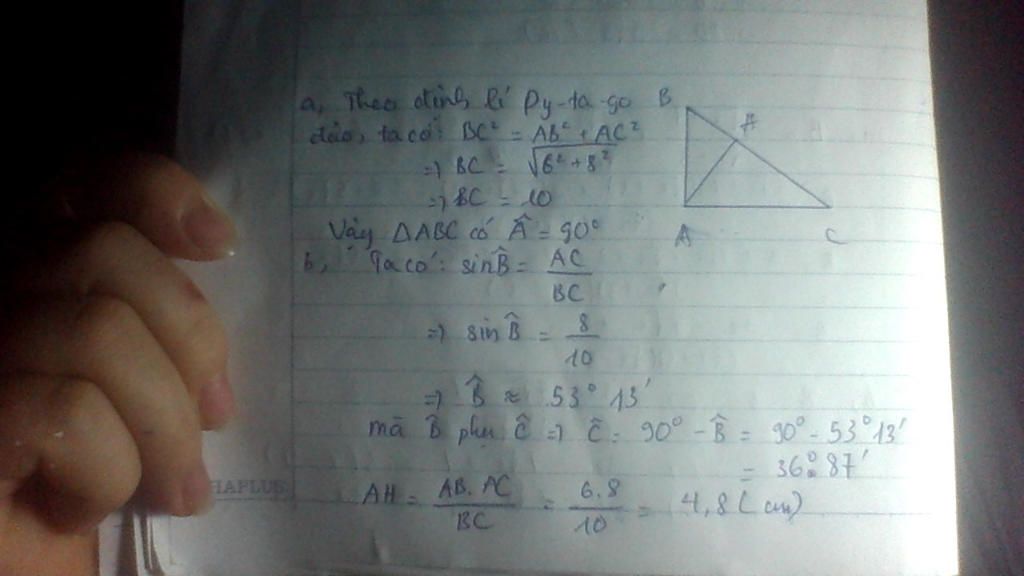 a, Theo định lí Py-ta-go B
đảo, ta có: BC² = AB² + AC²
=> BC = √6² + 8²
=> BC = 10
Vậy ΔABC có Â = 90°
b, Ta có: sin B̂ = AC / BC
=> sin B̂ = 8 / 10
=> B̂ ≈ 53° 13'
mà B̂ phụ Ĉ => Ĉ = 90° - B̂ = 90° - 53° 13'
= 36° 87'
AH = AB. AC / BC = 6.8 / 10 = 4,8 (cm)
H
A C
HAPLUS